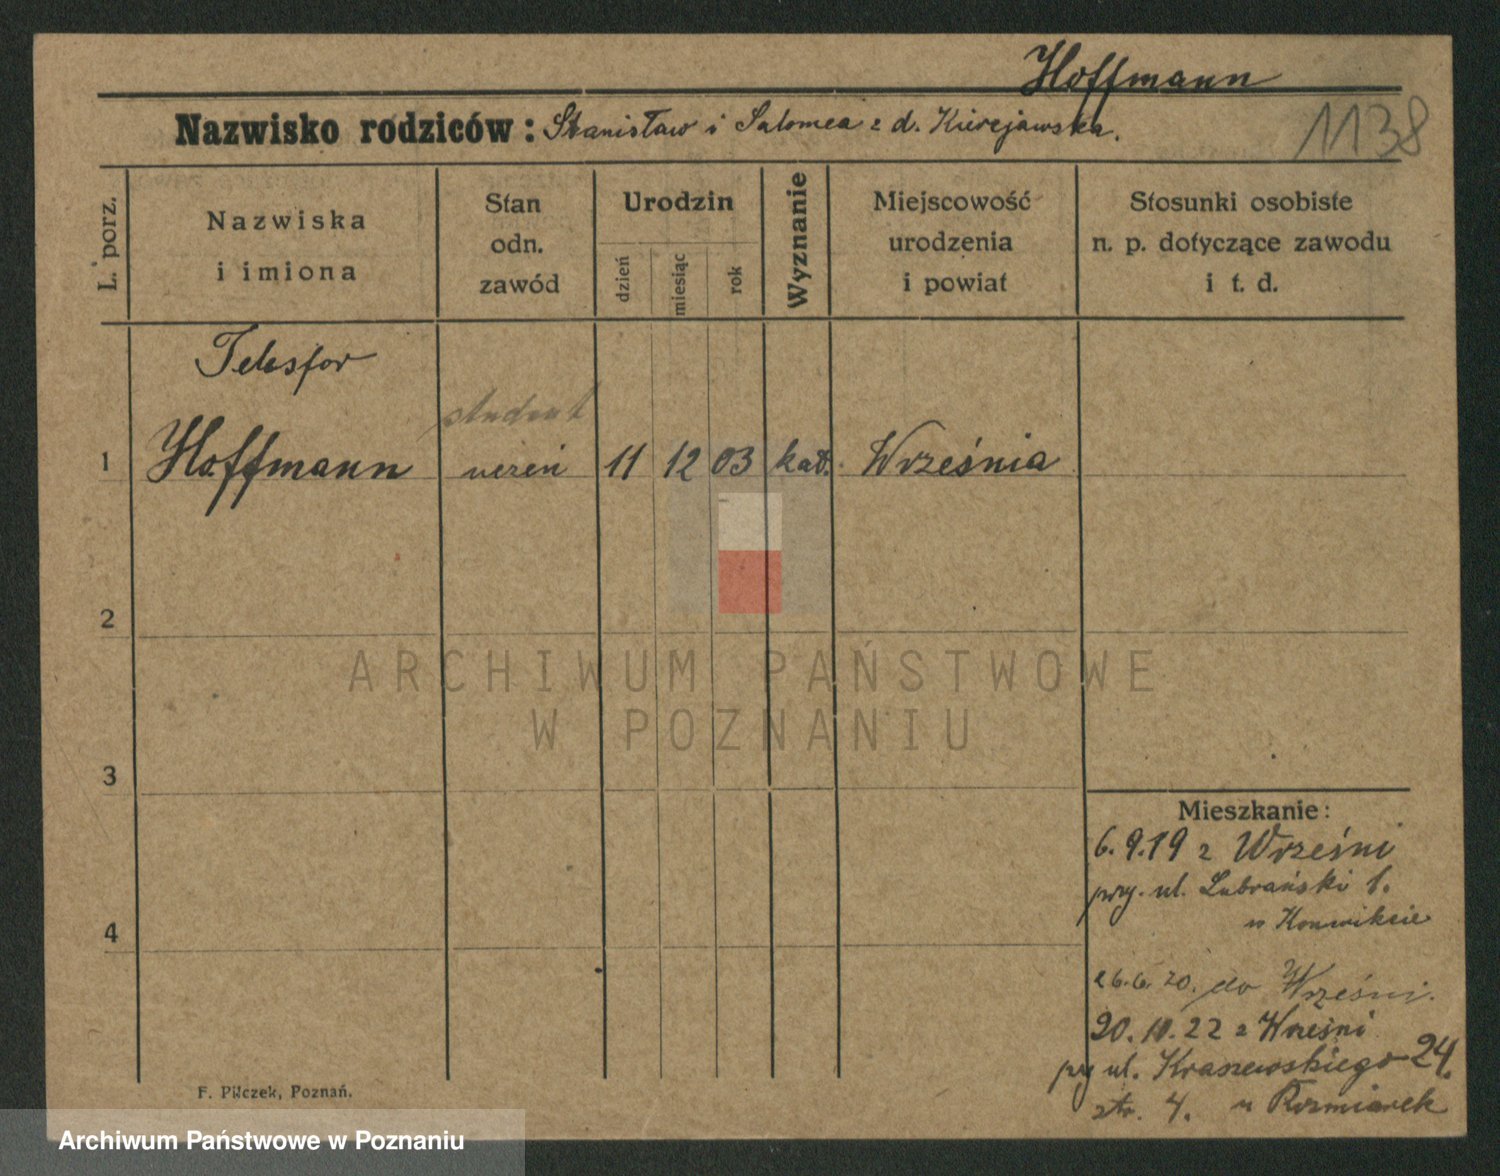 Hoffmann
Nazwisko rodziców: Stanisław i Salomea z d. Kierejawska.
1138
L. porz.
Nazwiska
i imiona
Stan
odn.
zawód
Urodzin
dzień
miesiąc
rok
Wyznanie
Miejscowość
urodzenia
i powiat
Stosunki osobiste
n. p. dotyczące zawodu
i t. d.
Telesfor
student
1 Hoffmann uczeń 11 12 03 kat. Września
2
3
4
ARCHIWUM PAŃSTWOWE
W POZNANIU
Mieszkanie:
6.9.19 z Wrześni
przy. ul. Lubrański 1.
w Konwikcie
26.6.20. do Wrześni.
20.10.22 z Wrześni
przy ul. Kraszewskiego 24.
ztr. 4. u
F. Pilczek, Poznań.
Archiwum Państwowe w Poznaniu